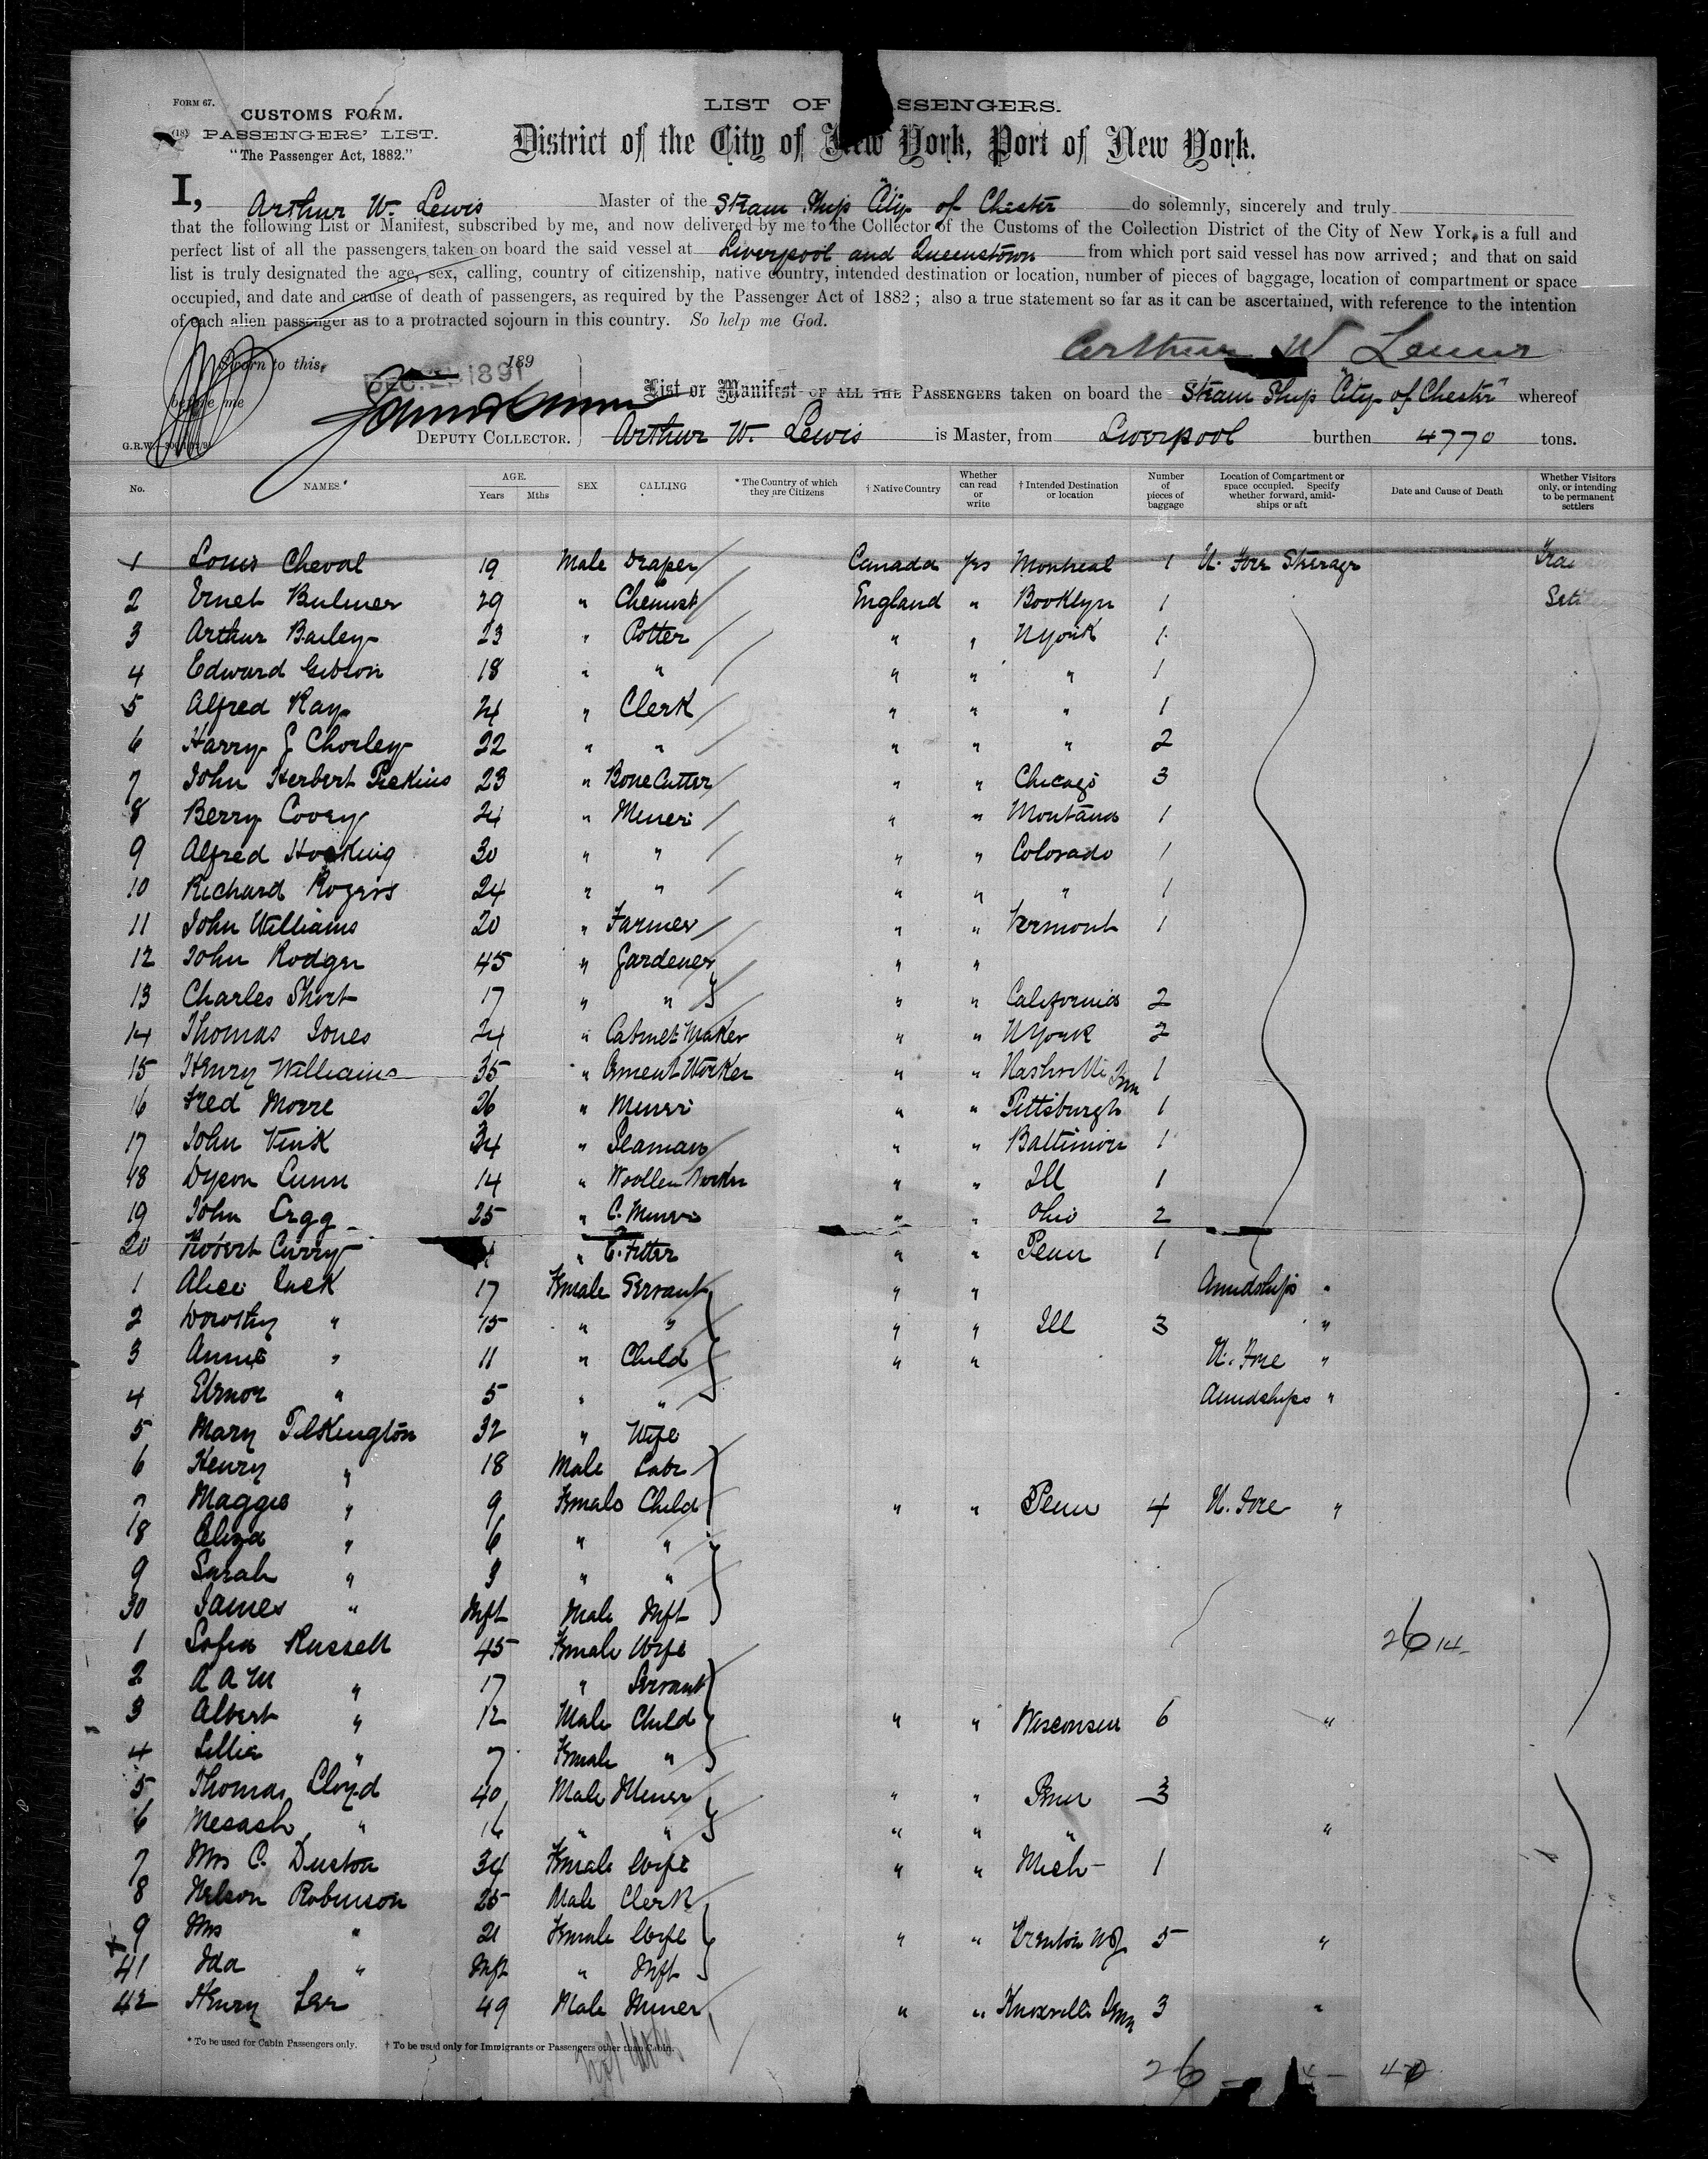 FORM 67.
CUSTOMS FORM.
(18) PASSENGERS' LIST.
"The Passenger Act, 1882."
LIST OF ASSENGERS.
District of the City of New York, Port of New York.
I, Arthur W. Lewis Master of the Steam Ship "City of Chester do solemnly, sincerely and truly
that the following List or Manifest, subscribed by me, and now delivered by me to the Collector of the Customs of the Collection District of the City of New York, is a full and
perfect list of all the passengers taken on board the said vessel at Liverpool and Queenstown from which port said vessel has now arrived; and that on said
list is truly designated the age, sex, calling, country of citizenship, native country, intended destination or location, number of pieces of baggage, location of compartment or space
occupied, and date and cause of death of passengers, as required by the Passenger Act of 1882; also a true statement so far as it can be ascertained, with reference to the intention
of each alien passenger as to a protracted sojourn in this country. So help me God.
Arthur W Lewis
Sworn to this, 189
DEC. 1891
before me
DEPUTY COLLECTOR.
List or Manifest OF ALL THE PASSENGERS taken on board the Steam Ship "City of Chester" whereof
Arthur W. Lewis is Master, from Liverpool burthen 4770 tons.
No. NAMES. AGE. Years Mths SEX CALLING * The Country of which they are Citizens † Native Country Whether can read or write † Intended Destination or location Number of pieces of baggage Location of Compartment or space occupied. Specify whether forward, amidships or aft Date and Cause of Death Whether Visitors only, or intending to be permanent settlers
1 Louis Cheval 19 Male Draper Canada Yes Montreal 1 U. Fore Steerage
2 Ernet Bulmer 29 " Chemist England " Booklyn 1
3 Arthur Bailey 23 " Potter " " NYork 1
4 Edward Gibson 18 " " " " " 1
5 Alfred Kay 24 " Clerk " " " 1
6 Harry J Chorley 22 " " " " " 2
7 John Herbert Perkins 23 " Bone Cutter " " Chicago 3
8 Berry Covey 24 " Miner " " Montana 1
9 Alfred Hocking 30 " " " " Colorado 1
10 Richard Rogers 24 " " " " " 1
11 John Williams 20 " Farmer " " Vermont 1
12 John Rodger 45 " Gardener " "
13 Charles Short 17 " " " " California 2
14 Thomas Jones 24 " Cabinet Maker " " NYork 2
15 Henry Williams 35 " Cement Worker " " Nashville Tenn 1
16 Fred Moore 26 " Miner " " Pittsburgh 1
17 John Vink 34 " Seaman " " Baltimore 1
18 Dyson Lunn 14 " Woollen Worker " " Ill 1
19 John Legg 25 " C. Miner " " Ohio 2
20 Robert Curry " C. Fitter " " Penn 1
1 Alice Luck 17 Female Servant " " Amidships "
2 Dorothy " 15 " " " " Ill 3 "
3 Annie " 11 " Child " " U. Fore "
4 Elenor " 5 " " Amidships "
5 Mary Pilkington 32 " Wife
6 Henry " 18 Male Labr
7 Maggie " 9 Female Child " " Penn 4 U. Fore "
8 Eliza " 6 " "
9 Sarah " 3 " "
30 James " Inft Male Inft
1 Sofia Russell 45 Female Wife 26 14
2 A A M " 17 " Servant
3 Albert " 12 Male Child " " Wisconsin 6 "
4 Lillie " 7 Female "
5 Thomas Lloyd 40 Male Miner " " Penn 3
6 Mesash " 16 " " " " " "
7 Mrs C. Duston 34 Female Wife " " Mich 1
8 Nelson Robinson 25 Male Clerk
9 Mrs " 21 Female Wife " " Trenton NJ. 5 "
41 Ida " Inft " Inft
42 Henry Lee 49 Male Miner " " Knoxville Tenn 3 "
* To be used for Cabin Passengers only. † To be used only for Immigrants or Passengers other than Cabin.
26